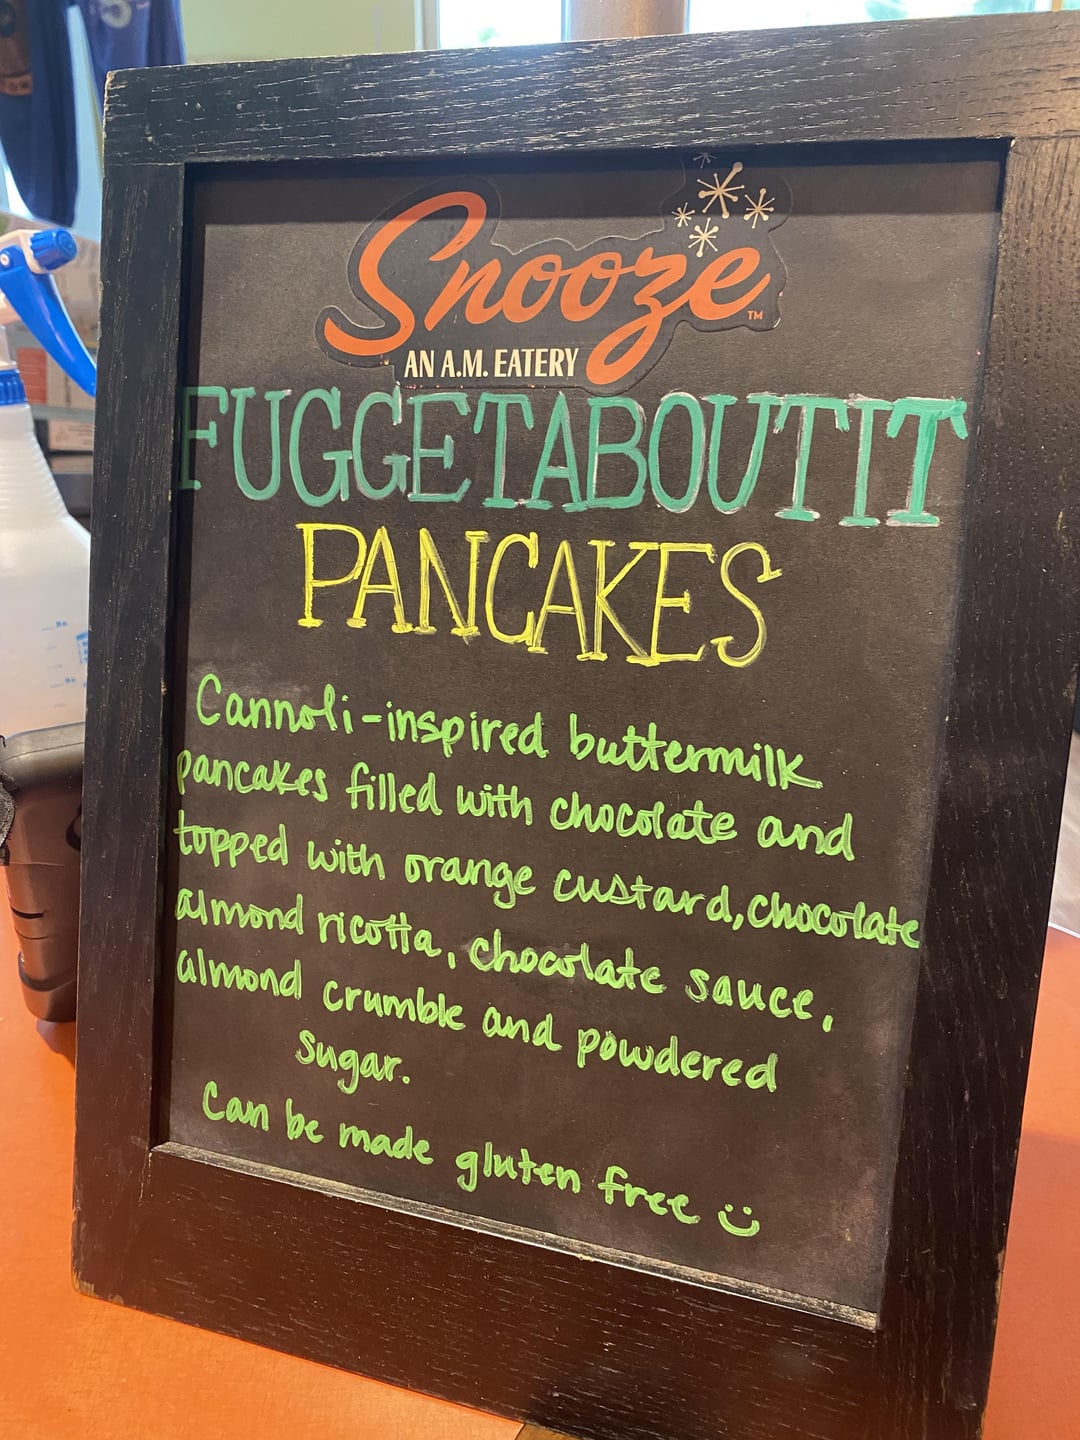 Snooze™
AN A.M. EATERY
FUGGETABOUTIT
PANCAKES
Cannoli-inspired buttermilk
pancakes filled with chocolate and
topped with orange custard, chocolate
almond ricotta, chocolate sauce,
almond crumble and powdered
sugar.
Can be made gluten free